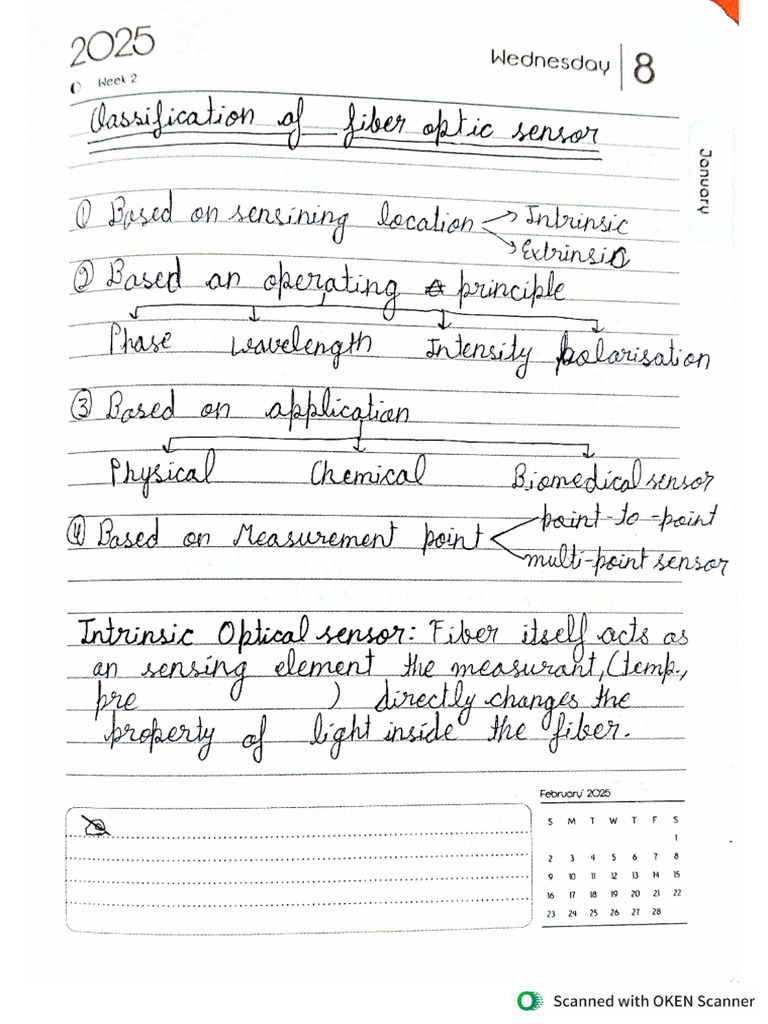 2025
Wednesday 8
Week 2
January
Classification of fiber optic sensor
① Based on sensining location → Intrinsic
→ Extrinsic
② Based an operating principle
Phase Wavelength Intensity polarisation
③ Based on application
Physical Chemical Biomedical sensor
④ Based on Measurement point point-to-point
multi-point sensor
Intrinsic Optical sensor: Fiber itself acts as
an sensing element the measurant, (temp.,
pre ) directly changes the
property of light inside the fiber.
February' 2025
S M T W T F S
1
2 3 4 5 6 7 8
9 10 11 12 13 14 15
16 17 18 19 20 21 22
23 24 25 26 27 28
Scanned with OKEN Scanner